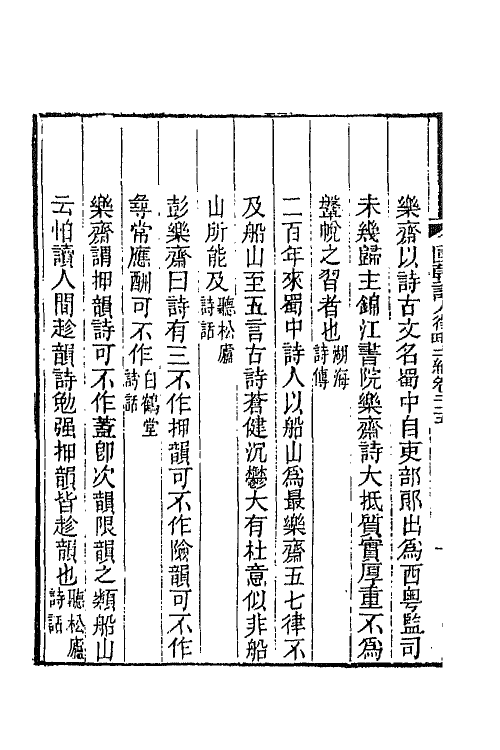 國朝詩人徵略二編卷二十五
樂齋以詩古文名蜀中自吏部郎出為西粤監司
未幾歸主錦江書院樂齋詩大抵質實厚重不為
鞶帨之習者也湖海詩傳
二百年來蜀中詩人以船山為最樂齋五七律不
及船山至五言古詩蒼健沉鬱大有杜意似非船
山所能及聽松廬詩話
彭樂齋曰詩有三不作押韻可不作險韻可不作
尋常應酬可不作白鶴堂詩話
樂齋謂押韻詩可不作蓋卽次韻限韻之類船山
云怕讀人間趁韻詩勉强押韻皆趁韻也聽松廬詩話